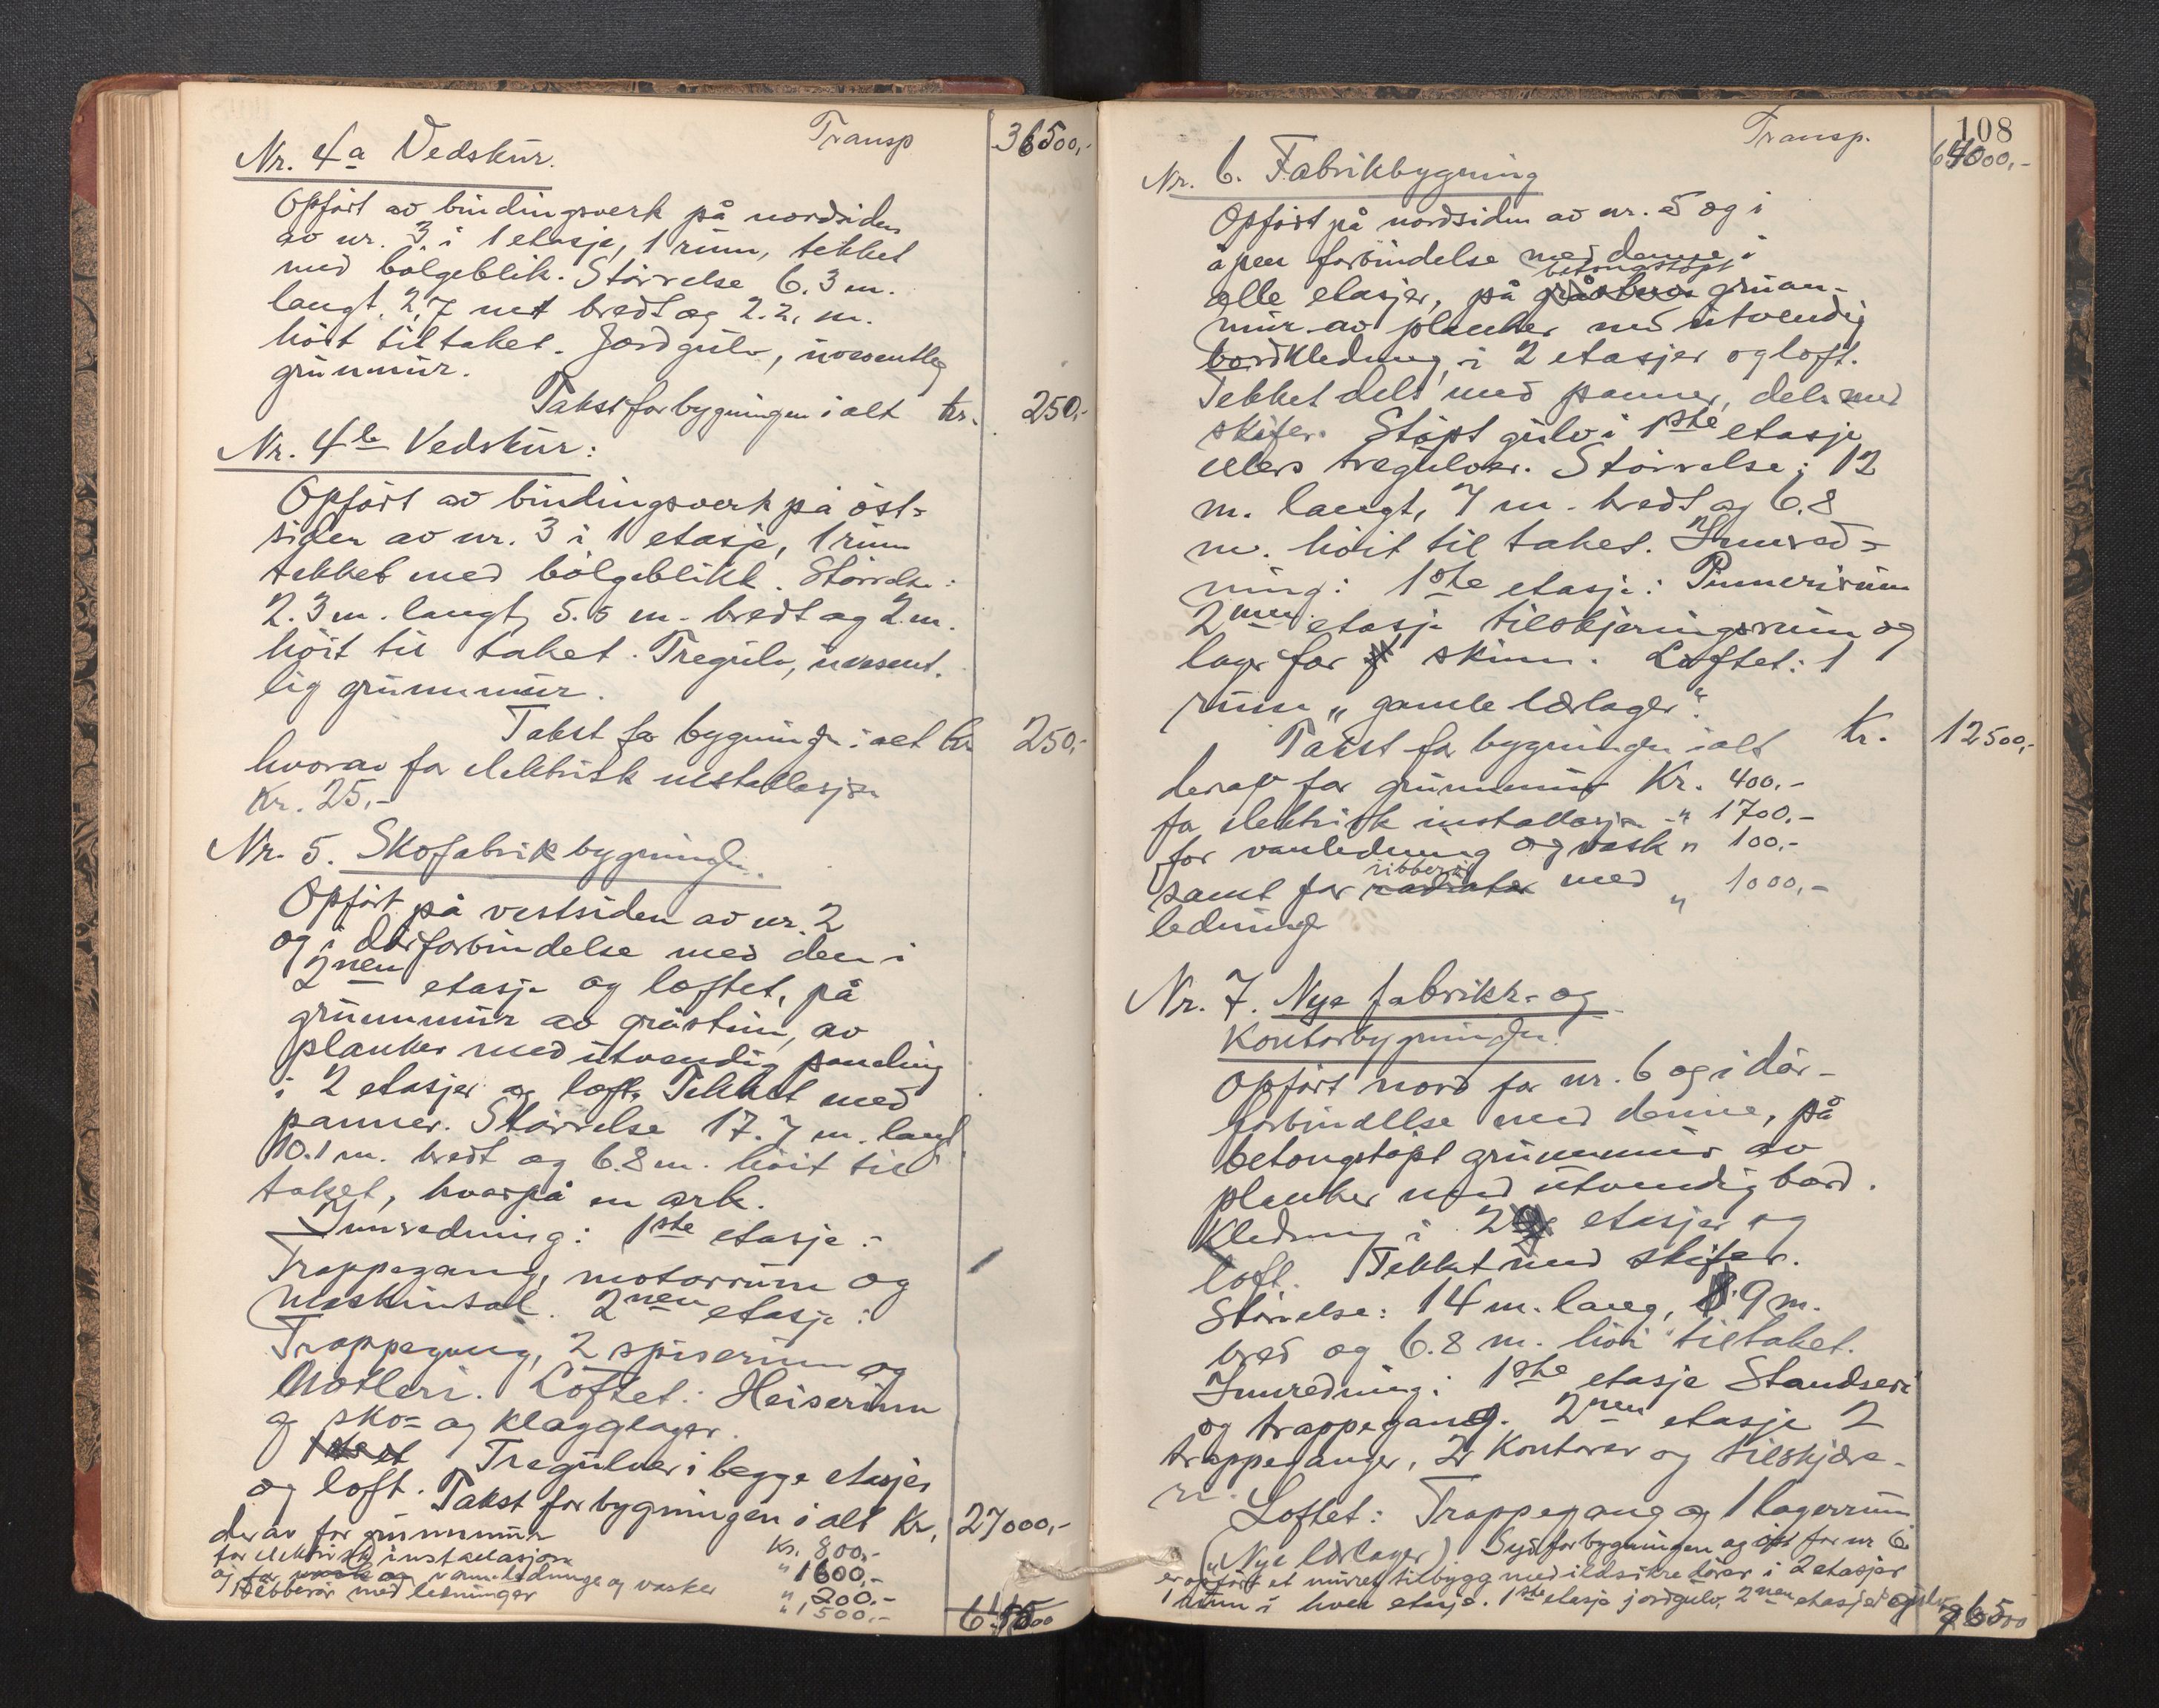 Transp 36500,-
Nr. 4a Vedskur.
Opført av bindingsverk på nordsiden
av nr. 3. i 1 etasje, 1 rum, tekket
med bølgeblik. Størrelse 6.3 m.
langt, 2,7 met bredt og 2.2, m.
høit til taket. Jordgulv, uvesentlig
grunmur.
Takst for bygningen i alt kr. 250,-
Nr. 4b Vedskur:
Opført av bindingsverk på øst-
siden av nr. 3 i 1 etasje, 1 rum
tekket med bølgeblikk. Størrelse:
2.3 m. langt, 5.5 m. bredt og 2 m.
høit til taket. Tregulv, uvesent.
lig grunnmur.
Takst for bygningen i alt Kr 250,-
hvorav for elektrisk installasjon
Kr. 25,-
Nr. 5. Skofabrikbygningen.
Opført på vestsiden av nr. 2
og i dørforbindelse med den i
2nen etasje og loftet, på
grunnmur av gråsten, av
planker med utvendig paneling
i 2 etasjer og loft. Tekket med
panner. Størrelse 17.7 m. langt
10.1 m. bredt og 6.8 m. høit til
taket, hvorpå en ark.
Innredning: 1ste etasje:
Trappegang, motorrum og
Maskinsal. 2nen etasje:
Trappegang, 2 spiserum og
Nåtleri. Loftet: Heiserum
og sko- og klægglager.
Tregulver i begge etasjer
og loft. Takst for bygningen i alt Kr. 27000,-
derav for grunnmur Kr. 800,-
for elektrisk installasjon " 1600,-
og for vannledninger og vasker " 200,-
ribberør med ledninger " 1500,-
108
Transp. 64000,-
Nr. 6. Fabrikbygning
Opført på nordsiden av nr. 5 og i
åpen forbindelse med denne i
betongstøpt
alle etasjer, på gråstens grun-
mur av planker med utvendig
bordkledning, i 2 etasjer og loft.
Tekket dels med panner, dels med
skifer. Støpt gulv i 1ste etasje
ellers tregulver. Størrelse: 12
m. langt, 7 m. bredt og 6.8
m. høit til taket. Innred-
ning: 1ste etasje: Pinnerirum
2nen etasje tilskjæringsrum og
lager for skinn. Loftet: 1
rum „gamle lærlager".
Takst for bygningen i alt Kr. 12500,-
derav for grunnmur Kr. 400,-
for elektrisk installasjon " 1700,-
for vanledning og vask " 100,-
ribberør
samt for radiator med " 1000,-
ledninger
Nr. 7. Nye fabrikk- og
Kontorbygningen.
Opført nord for nr. 6 og i dør-
forbindelse med denne, på
betongstøpt grunnmur av
planker med utvendig bord.
kledning i 2 etasjer og
loft. Tekket med skifer.
Størrelse: 14 m. lang, 8.9 m.
bred og 6.8 m. høi til taket.
Innredning: 1ste etasje Standseri
og trappegang. 2nen etasje 2
trappeganger, 2 Kontorer og tilskjære-
ri.
Loftet: Trappegang og 1 lagerrum
("Nye lærlager) Syd for bygningen og for nr 6
er opført et murret tilbygg med ildsikre dører i 2 etasjer
1 rum i hver etasje. 1ste etasje jordgulv, 2nen etasje gulv
76500